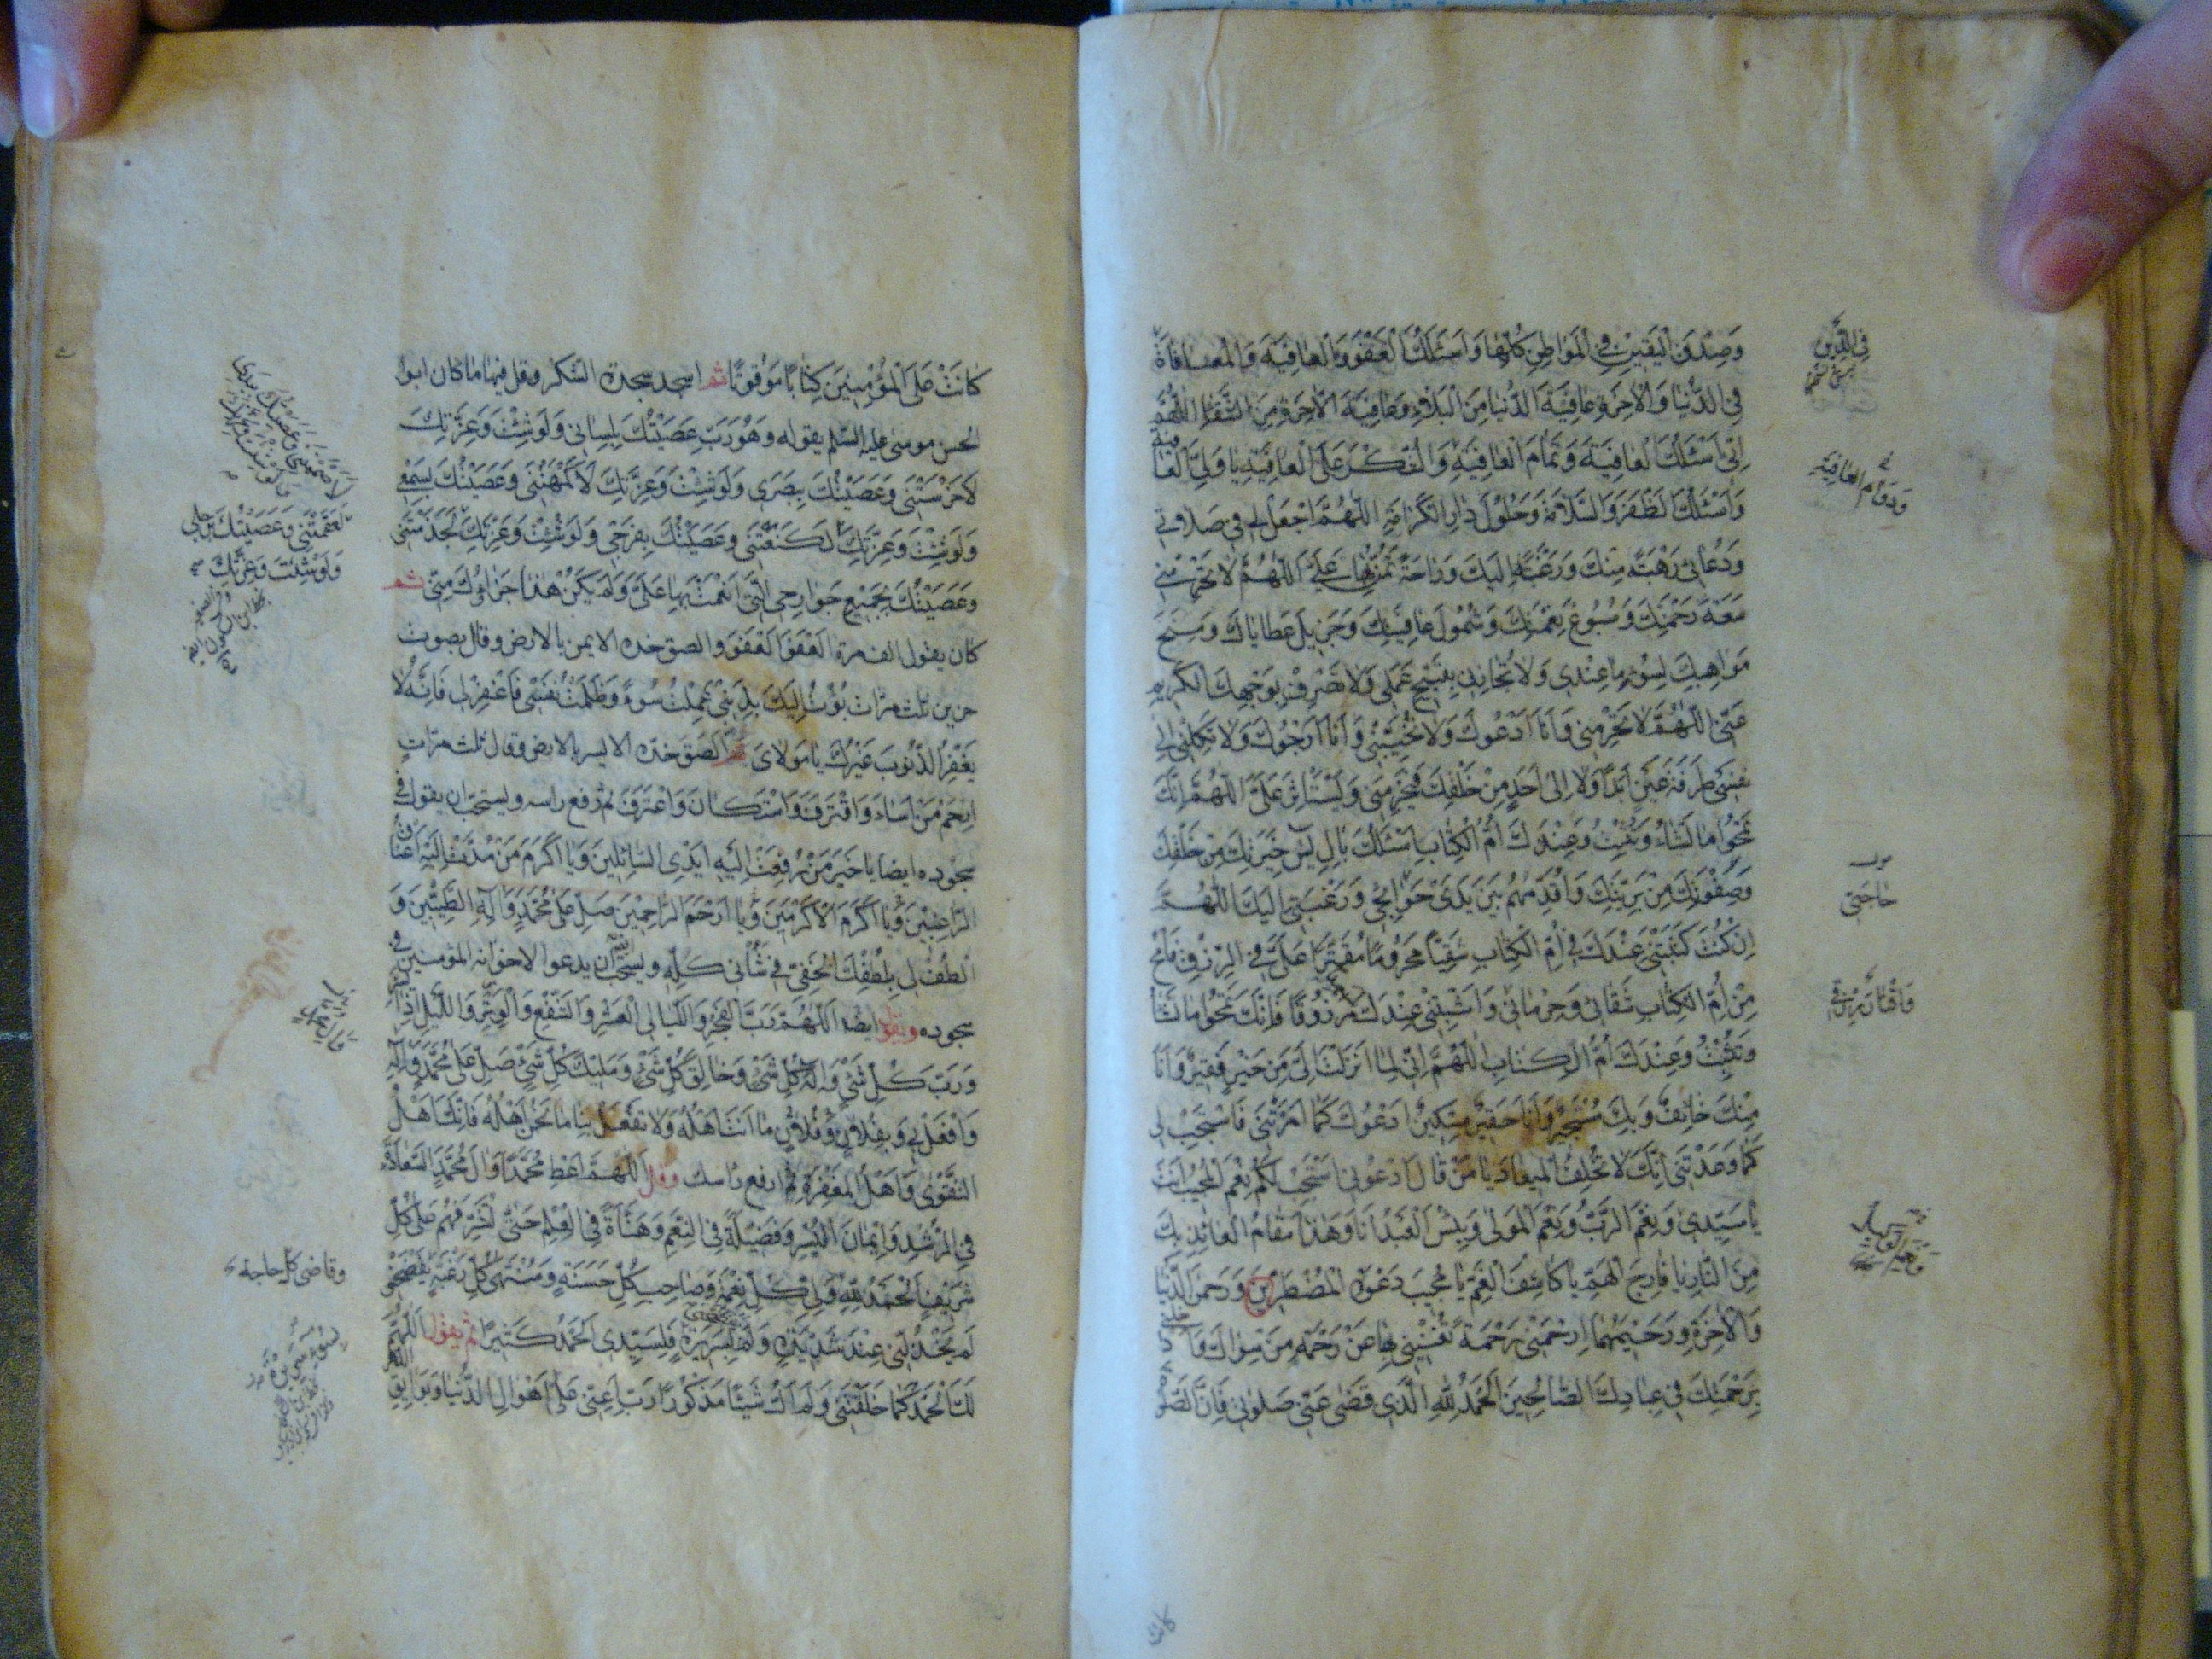 وَصِدْقَ الْيَقِينِ فِي الْمَوَاطِنِ كُلِّهَا وَاَسْئَلُكَ الْعَفْوَ وَالْعَافِيَةَ وَالْمُعَافَاةَ
فِي الدُّنْيَا وَالْاٰخِرَةِ عَافِيَةَ الدُّنْيَا مِنَ الْبَلَاءِ وَعَافِيَةَ الْاٰخِرَةِ مِنَ الشَّقَاءِ اَللّٰهُمَّ
اِنّيِ اَسْئَلُكَ الْعَافِيَةَ وَتَمَامَ الْعَافِيَةِ وَالشُّكْرَ عَلَى الْعَافِيَةِ يَا وَلِيَّ الْعَافِيَةِ
وَاَسْئَلُكَ الظَّفَرَ وَالسَّلَامَةَ وَحُلُولَ دَارِ الْكَرَامَةِ اَللّٰهُمَّ اجْعَلْ لِي فِي صَلَاتِي
وَدُعَائِي رَهْبَةً مِنْكَ وَرَغْبَةً اِلَيْكَ وَرَاحَةً تَمُنُّ بِهَا عَلَيَّ اَللّٰهُمَّ لَا تَحْرِمْنِي
سَعَةَ رَحْمَتِكَ وَسُبُوغَ نِعْمَتِكَ وَشُمُولَ عَافِيَتِكَ وَجَزِيلَ عَطَايَاكَ وَمِنَحَ
مَوَاهِبِكَ لِسُوءِ مَا عِنْدِي وَلَا تُجَازِنِي بِقَبِيحِ عَمَلِي وَلَا تَصْرِفْ بِوَجْهِكَ الْكَرِيمِ
عَنِّي اَللّٰهُمَّ لَا تَحْرِمْنِي وَاَنَا اَدْعُوكَ وَلَا تُخَيِّبْنِي وَاَنَا اَرْجُوكَ وَلَا تَكِلْنِي اِلٰى
نَفْسِي طَرْفَةَ عَيْنٍ اَبَدًا وَلَا اِلٰى اَحَدٍ مِنْ خَلْقِكَ فَيَحْرِمَنِي وَيَسْتَاْثِرَ عَلَيَّ اَللّٰهُمَّ اِنَّكَ
تَمْحُو مَا تَشَاءُ وَتُثْبِتُ وَعِنْدَكَ اُمُّ الْكِتَابِ اَسْئَلُكَ بِاٰلِ يٰسٓ خِيَرَتِكَ مِنْ خَلْقِكَ
وَصَفْوَتِكَ مِنْ بَرِيَّتِكَ وَاُقَدِّمُهُمْ بَيْنَ يَدَيْ حَوَائِجِي وَرَغْبَتِي اِلَيْكَ اَللّٰهُمَّ
اِنْ كُنْتَ كَتَبْتَنِي عِنْدَكَ فِي اُمِّ الْكِتَابِ شَقِيًّا مَحْرُومًا مُقَتَّرًا عَلَيَّ فِي الرِّزْقِ فَامْحُ
مِنْ اُمِّ الْكِتَابِ شَقَائِي وَحِرْمَانِي وَاَثْبِتْنِي عِنْدَكَ مَرْزُوقًا فَاِنَّكَ تَمْحُو مَا تَشَاءُ
وَتُثْبِتُ وَعِنْدَكَ اُمُّ الْكِتَابِ اَللّٰهُمَّ اِنِّي لِمَا اَنْزَلْتَ اِلَيَّ مِنْ خَيْرٍ فَقِيرٌ وَاَنَا
مِنْكَ خَائِفٌ وَبِكَ مُسْتَجِيرٌ وَاَنَا حَقِيرٌ مِسْكِينٌ اَدْعُوكَ كَمَا اَمَرْتَنِي فَاسْتَجِبْ لِي
كَمَا وَعَدْتَنِي اِنَّكَ لَا تُخْلِفُ الْمِيعَادَ يَا مَنْ قَالَ ادْعُونِي اَسْتَجِبْ لَكُمْ نِعْمَ الْمُجِيبُ اَنْتَ
يَا سَيِّدِي وَنِعْمَ الرَّبُّ وَنِعْمَ الْمَوْلٰى وَبِئْسَ الْعَبْدُ اَنَا وَهٰذَا مَقَامُ الْعَائِذِ بِكَ
مِنَ النَّارِ يَا فَارِجَ الْهَمِّ يَا كَاشِفَ الْغَمِّ يَا مُجِيبَ دَعْوَةِ الْمُضْطَرِّينَ وَرَحْمٰنَ الدُّنْيَا
وَالْاٰخِرَةِ وَرَحِيمَهُمَا اِرْحَمْنِي رَحْمَةً تُغْنِينِي بِهَا عَنْ رَحْمَةِ مَنْ سِوَاكَ وَاَدْخِلْنِي
بِرَحْمَتِكَ فِي عِبَادِكَ الصَّالِحِينَ اَلْحَمْدُ لِلّٰهِ الَّذِي قَضٰى عَنِّي صَلٰوتِي فَاِنَّ الصَّلٰوةَ
فِي الدِّينِ
وَدَوَامَ الْعَافِيَةِ
حَاجَتِي
وَاقْتَارَ رِزْقِي
كانت
كَانَتْ عَلَى الْمُؤْمِنِينَ كِتَابًا مَوْقُوتًا ثم اسجد سجدة الشكر وقل فيها ما كان ابو
الحسن موسى عليه السلم يقوله وهو رَبِّ عَصَيْتُكَ بِلِسَانِي وَلَوْ شِئْتَ وَعِزَّتِكَ
لَاَخْرَسْتَنِي وَعَصَيْتُكَ بِبَصَرِي وَلَوْ شِئْتَ وَعِزَّتِكَ لَاَكْمَهْتَنِي وَعَصَيْتُكَ بِسَمْعِي
وَلَوْ شِئْتَ وَعِزَّتِكَ لَكَنَّعْتَنِي وَعَصَيْتُكَ بِفَرْجِي وَلَوْ شِئْتَ وَعِزَّتِكَ لَجَذَمْتَنِي
وَعَصَيْتُكَ بِجَمِيعِ جَوَارِحِي الَّتِي اَنْعَمْتَ بِهَا عَلَيَّ وَلَمْ يَكُنْ هٰذَا جَزَاؤُكَ مِنِّي ثم
كان يقول الف مرة اَلْعَفْوَ اَلْعَفْوَ والصق خده الايمن بالارض وقال بصوت
حزين ثلث مرات بُؤْتُ اِلَيْكَ بِذَنْبِي عَمِلْتُ سُوءً وَظَلَمْتُ نَفْسِي فَاغْفِرْ لِي فَاِنَّهُ لَا
يَغْفِرُ الذُّنُوبَ غَيْرُكَ يَا مَوْلَايَ ثم الصق خده الايسر بالارض وقال ثلث مرات
اِرْحَمْ مَنْ اَسَاءَ وَاقْتَرَفَ وَاسْتَكَانَ وَاعْتَرَفَ ثم رفع راسه ويستحب ان يقول في
سجوده ايضا يَا خَيْرَ مَنْ رُفِعَتْ اِلَيْهِ اَيْدِي السَّائِلِينَ وَيَا اَكْرَمَ مَنْ مُدَّتْ اِلَيْهِ اَعْنَاقُ
الرَّاغِبِينَ وَيَا اَكْرَمَ الْاَكْرَمِينَ وَيَا اَرْحَمَ الرَّاحِمِينَ صَلِّ عَلٰى مُحَمَّدٍ وَاٰلِهِ الطَّيِّبِينَ وَ
الْطُفْ لِي بِلُطْفِكَ الْخَفِيِّ فِي شَأْنِي كُلِّهِ ويستحب ان يدعو لاخوانه المؤمنين في
سجوده ويقول ايضا اَللّٰهُمَّ رَبَّ الْفَجْرِ وَاللَّيَالِي الْعَشْرِ وَالشَّفْعِ وَالْوَتْرِ وَاللَّيْلِ اِذَا يَسْرِ
وَرَبَّ كُلِّ شَيْءٍ وَاِلٰهَ كُلِّ شَيْءٍ وَخَالِقَ كُلِّ شَيْءٍ وَمَلِيكَ كُلِّ شَيْءٍ صَلِّ عَلٰى مُحَمَّدٍ وَاٰلِهِ
وَافْعَلْ بِي وَبِفُلَانٍ وَفُلَانٍ مَا اَنْتَ اَهْلُهُ وَلَا تَفْعَلْ بِنَا مَا نَحْنُ اَهْلُهُ فَاِنَّكَ اَهْلُ
التَّقْوٰى وَاَهْلُ الْمَغْفِرَةِ ثم ارفع راسك وقل اَللّٰهُمَّ اَعْطِ مُحَمَّدًا وَاٰلَ مُحَمَّدٍ السَّعَادَةَ
فِي الرُّشْدِ وَاِيمَانَ الْيُسْرِ وَفَضِيلَةً فِي النِّعَمِ وَهَنَاءَةً فِي الْعِلْمِ حَتّٰى تُشَرِّفَهُمْ عَلٰى كُلِّ
شَرِيفٍ اَلْحَمْدُ لِلّٰهِ وَلِيِّ كُلِّ نِعْمَةٍ وَصَاحِبِ كُلِّ حَسَنَةٍ وَمُنْتَهٰى كُلِّ رَغْبَةٍ
لَمْ يَخْذُلْنِي عِنْدَ شَدِيدَةٍ وَلَمْ يَفْضَحْنِي بِسَرِيرَةٍ فَلِسَيِّدِي الْحَمْدُ كَثِيرًا ثم يقول اَللّٰهُمَّ
لَكَ الْحَمْدُ كَمَا خَلَقْتَنِي وَلَمْ اَكُ شَيْئًا مَذْكُورًا رَبِّ اَعِنِّي عَلٰى اَهْوَالِ الدُّنْيَا وَبَوَائِقِ
لَعَقَمْتَنِي وَعَصَيْتُكَ بِرِجْلِي
وَلَوْ شِئْتَ وَعِزَّتِكَ
وقاضي كل حاجة